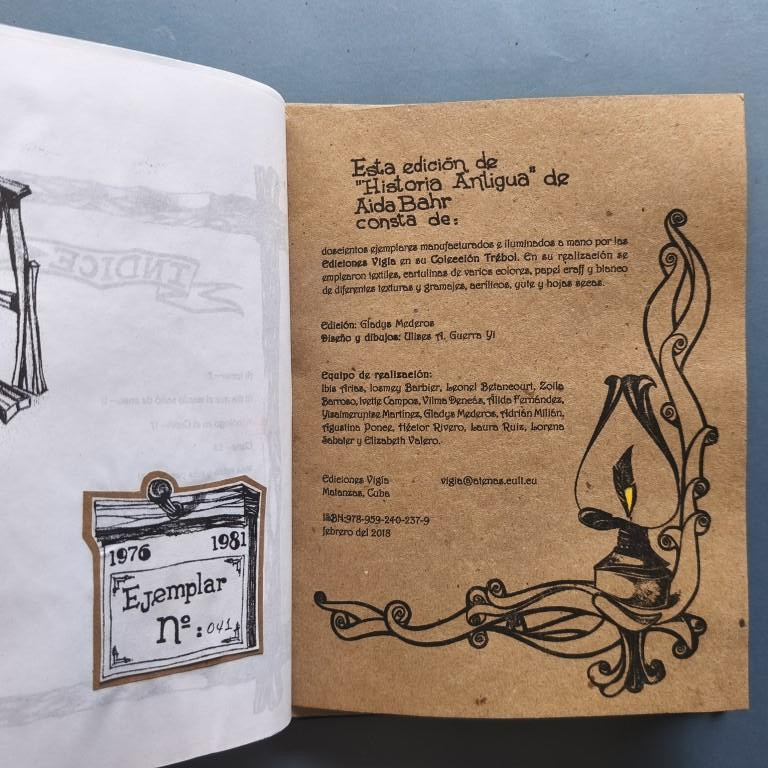 INDICE
1976 1981
Ejemplar
Nº: 041
Esta edición de
"Historia Antigua" de
Aida Bahr
consta de:
doscientos ejemplares manufacturados e iluminados a mano por las
Ediciones Vigía en su Colección Trébol. En su realización se
emplearon textiles, cartulinas de varios colores, papel craff y blanco
de diferentes texturas y gramajes, acrílicos, yute y hojas secas.
Edición: Gladys Mederos
Diseño y dibujos: Ulises A. Guerra Yi
Equipo de realización:
Ibis Arias, Iosmey Barbier, Leonel Betancourt, Zoila
Barroso, Ivette Campos, Vilma Deneás, Ailida Fernández,
Martínez, Gladys Mederos, Adrián Milián,
Agustina Ponce, Héctor Rivero, Laura Ruiz, Lorena
Sabater y Elizabeth Valero.
Ediciones Vigía vigia@atenas.cult.cu
Matanzas, Cuba
ISBN:978-959-240-237-9
febrero del 2018